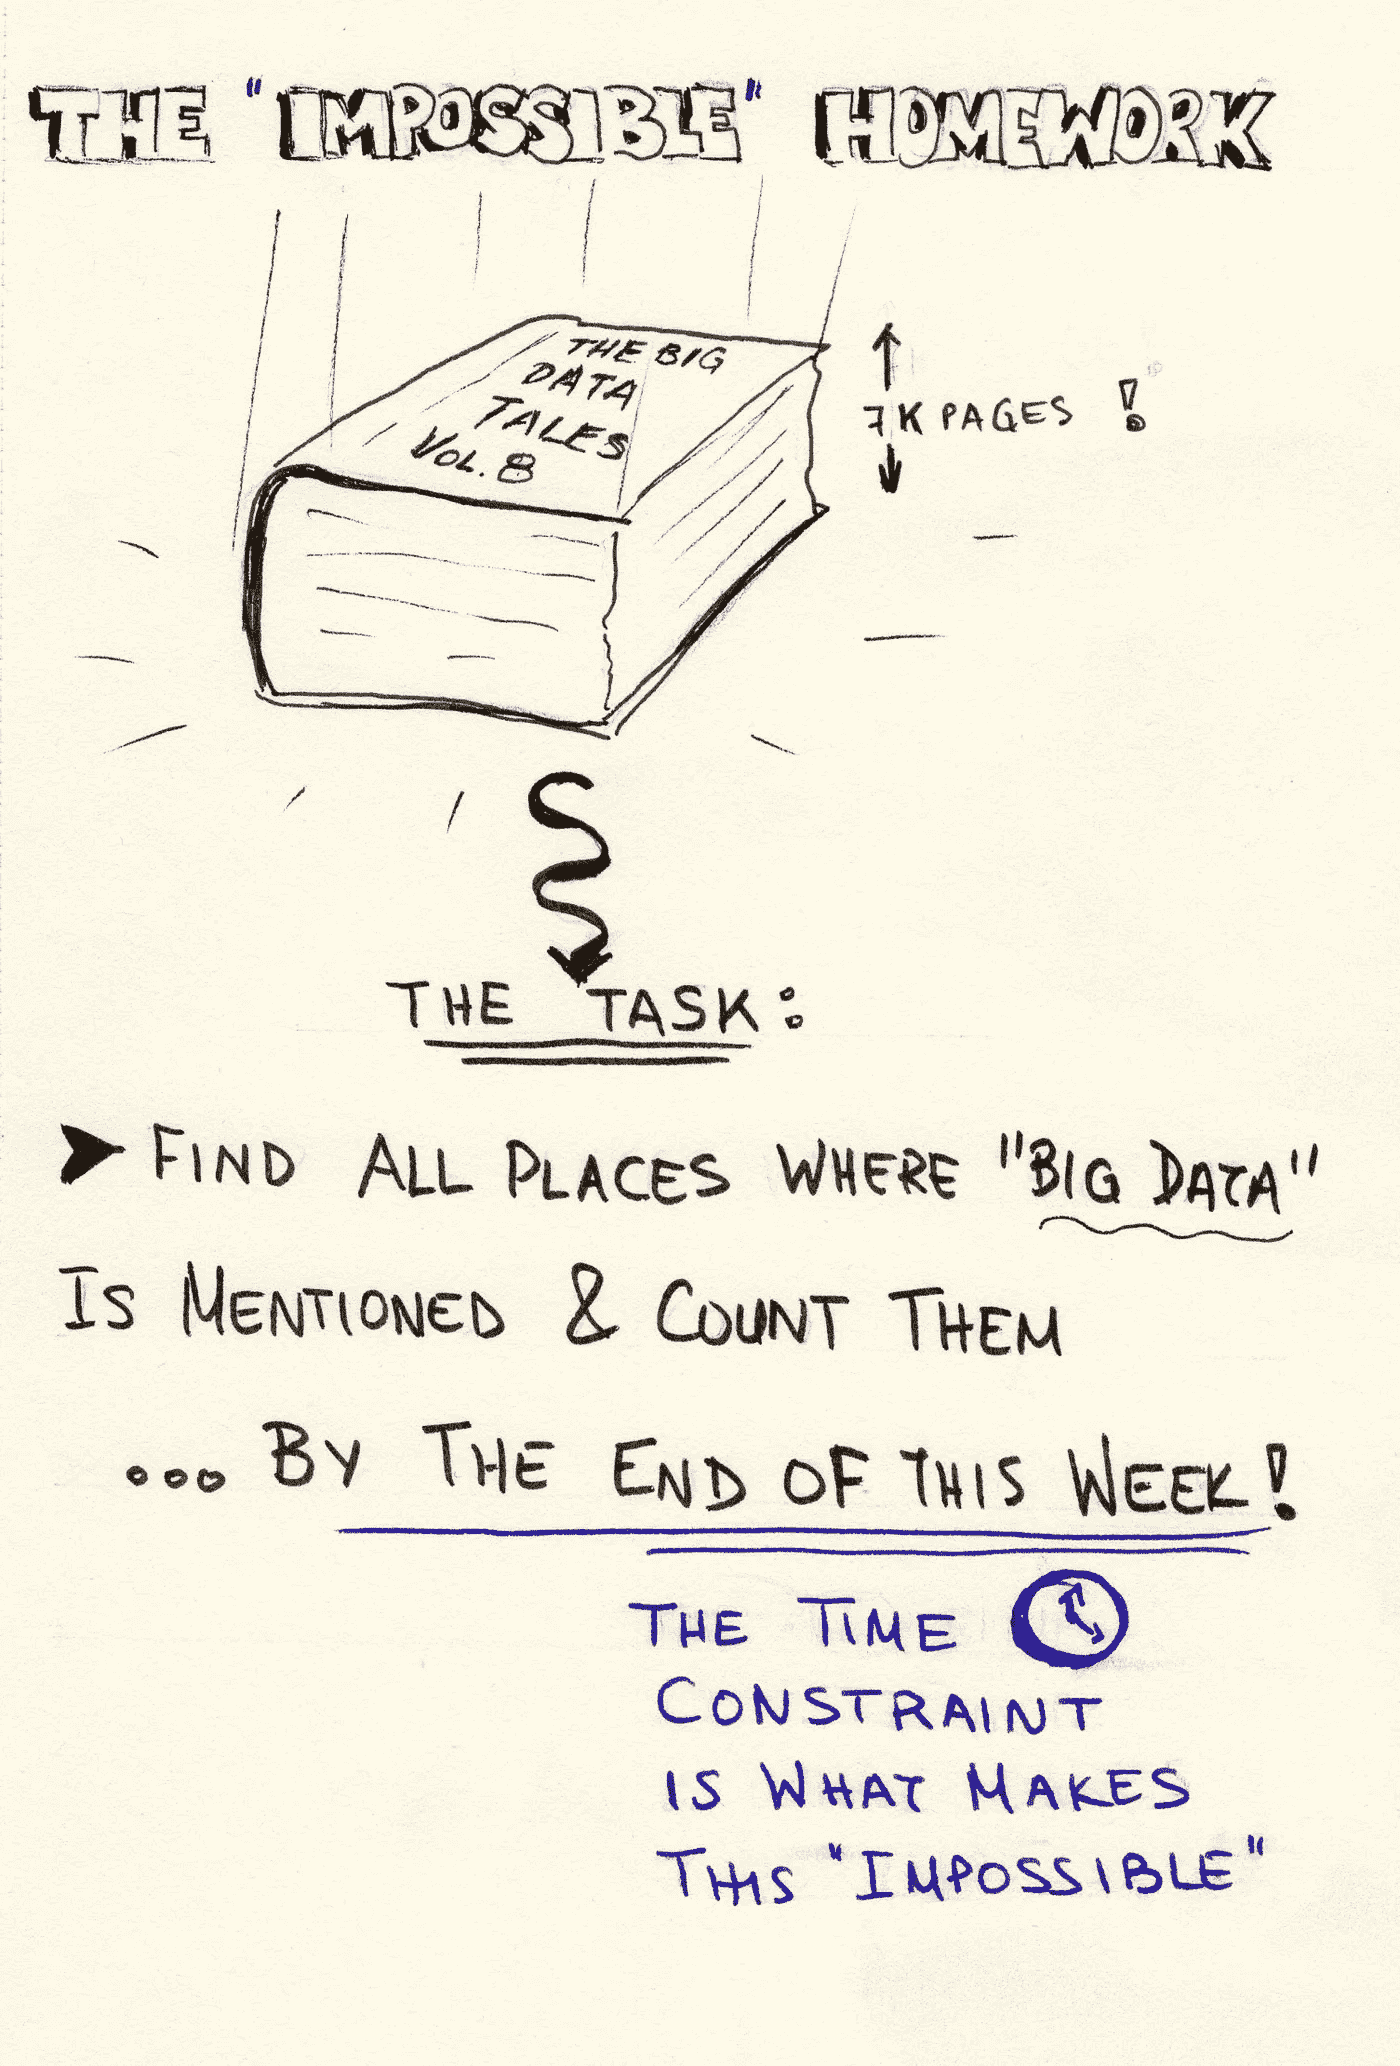 THE "IMPOSSIBLE" HOMEWORK
THE BIG
DATA
TALES
VOL. 8
7K PAGES !
THE TASK:
FIND ALL PLACES WHERE "BIG DATA"
IS MENTIONED & COUNT THEM
... BY THE END OF THIS WEEK!
THE TIME
CONSTRAINT
IS WHAT MAKES
THIS "IMPOSSIBLE"